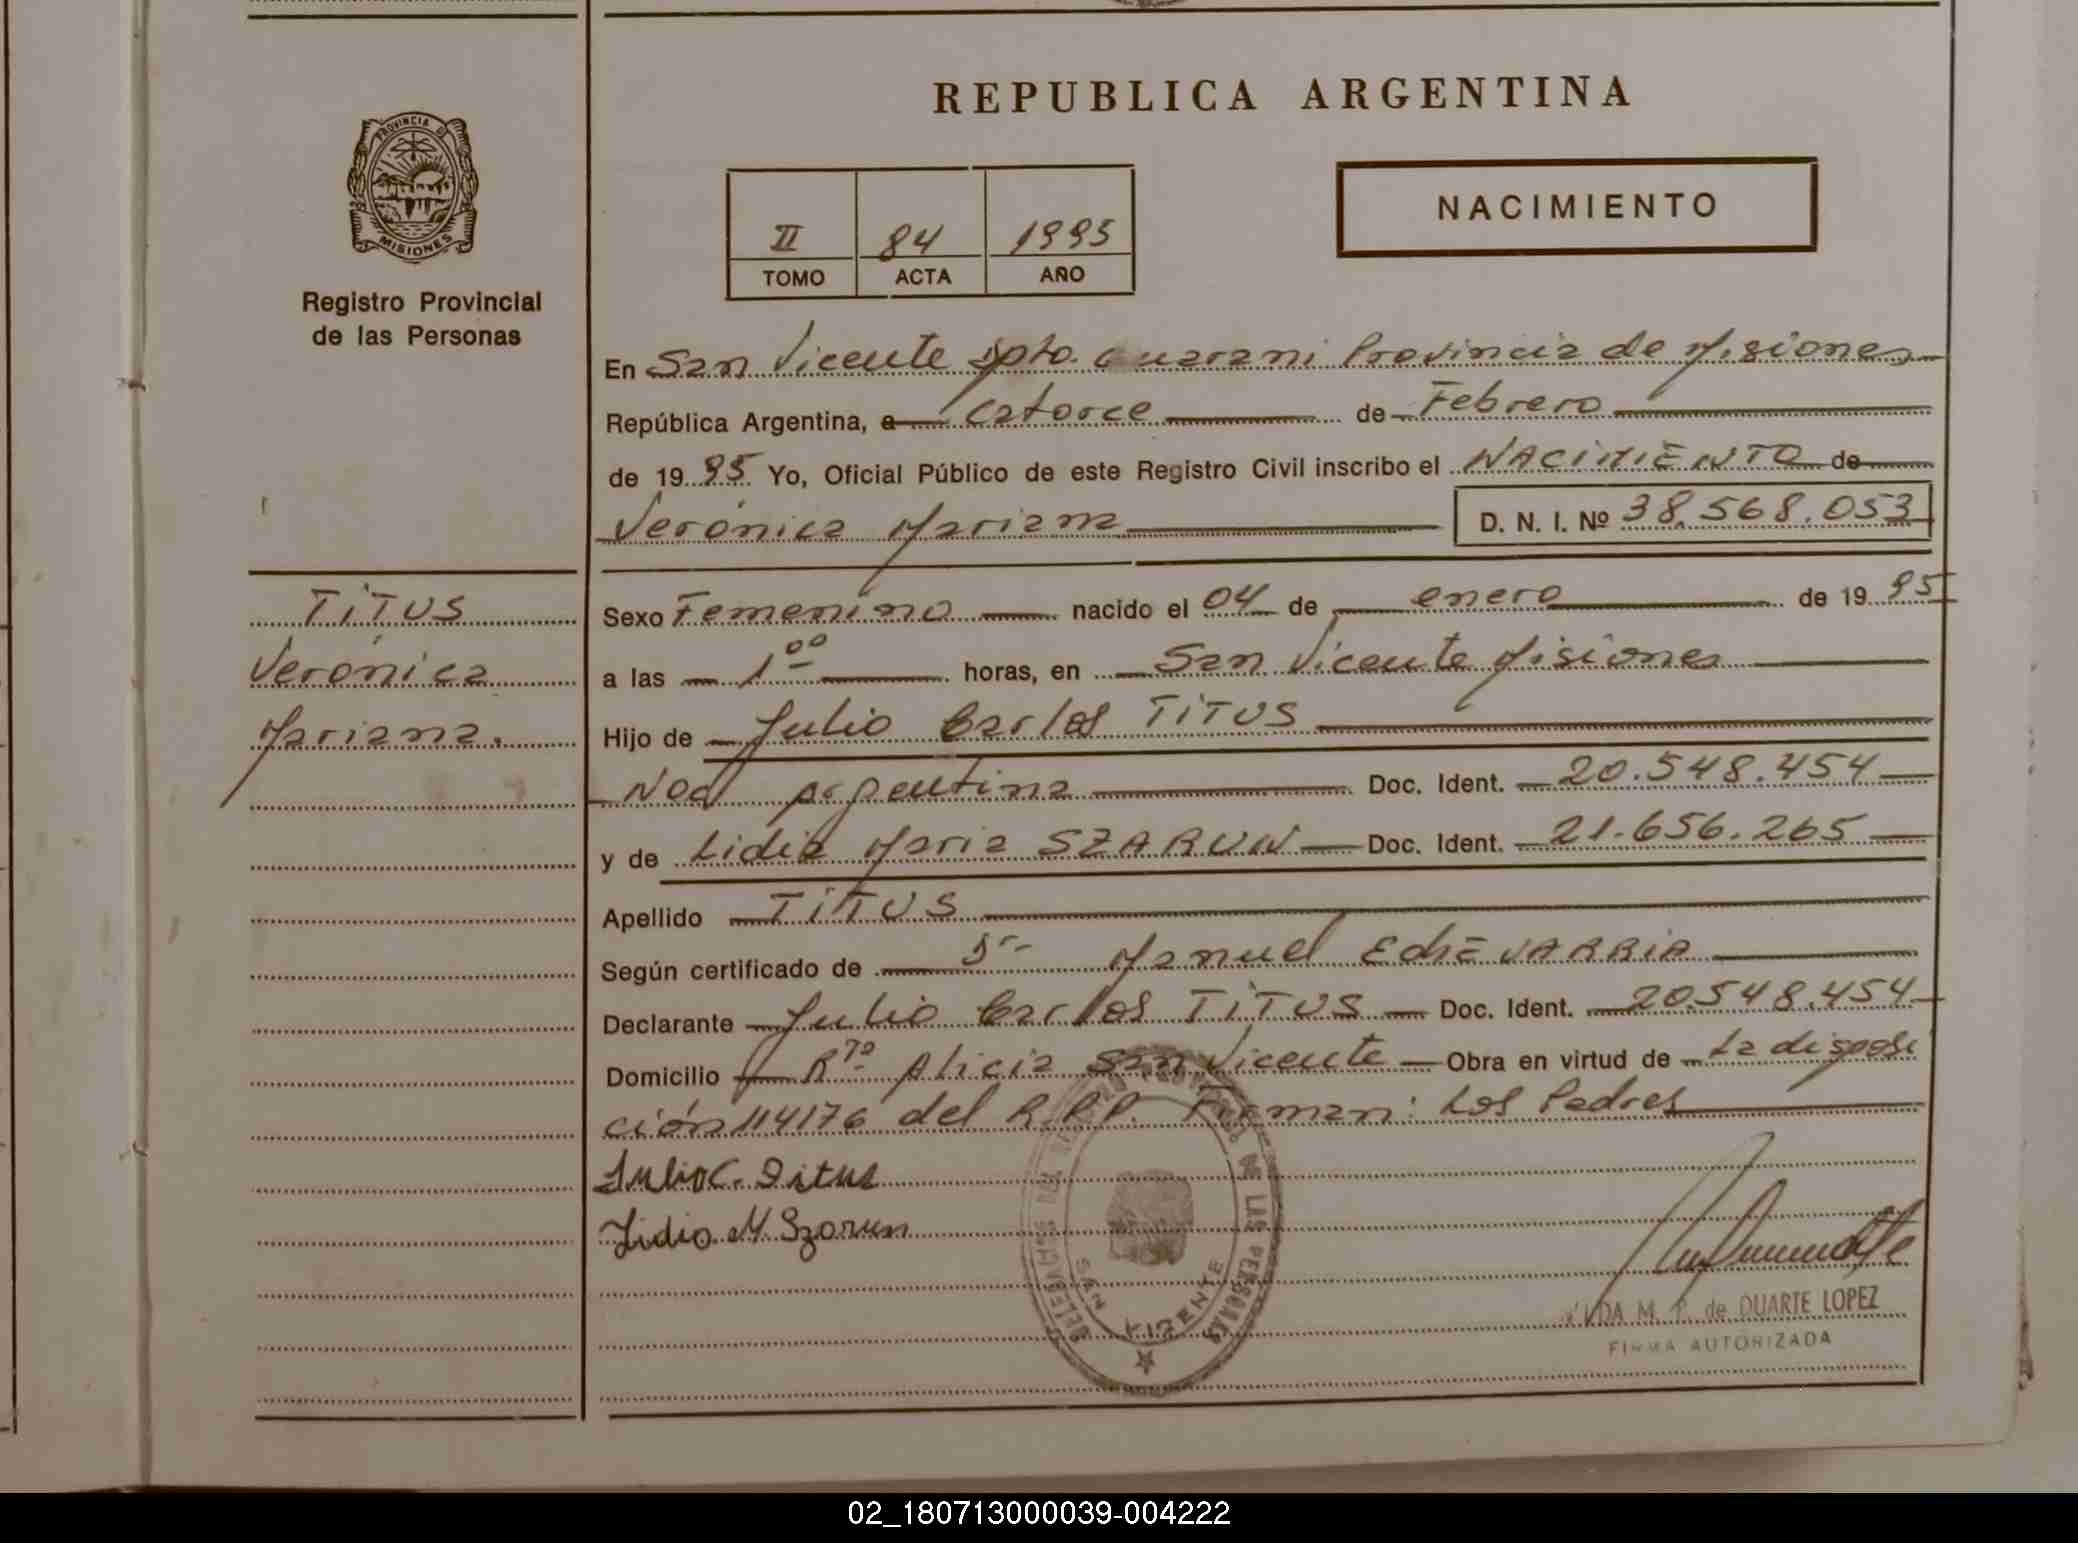 REPUBLICA ARGENTINA
PROVINCIA DE
MISIONES
Registro Provincial
de las Personas
II 84 1995
TOMO ACTA AÑO
NACIMIENTO
En San Vicente Dpto. Guarani Provincia de Misiones
República Argentina, a Catorce de Febrero
de 1995 Yo, Oficial Público de este Registro Civil inscribo el NACIMIENTO de
Verónica Mariana D. N. I. Nº 38.568.053
TITUS
Verónica
Mariana.
Sexo Femenino nacido el 04 de enero de 1995
a las 1⁰⁰ horas, en San Vicente Misiones
Hijo de Julio Carlos TITUS
Nac Argentina Doc. Ident. 20.548.454
y de Lidia Maria SZARUN Doc. Ident. 21.656.265
Apellido TITUS
Según certificado de Dr Manuel EchEVARRIA
Declarante Julio Carlos TITUS Doc. Ident. 20.548.454
Domicilio Alicia San Vicente Obra en virtud de La disposi
ción 114176 del R.P.P. Firman: Los Padres
Julio C. Titus
Lidia M. Szarun
DELEGACION DEL REGISTRO PROVINCIAL DE LAS PERSONAS
SAN VICENTE
M. P. de DUARTE LOPEZ
FIRMA AUTORIZADA
02_180713000039-004222